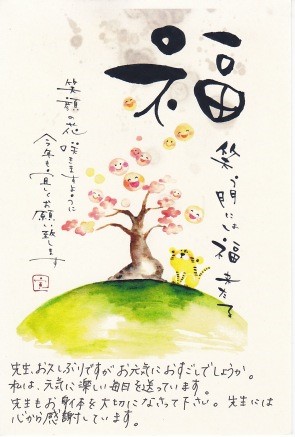 福
笑う門には福来たる
笑顔の花
咲きますように
今年も宜しくお願い致します
先生、お久しぶりですがお元気におすごしでしょうか。
私は、元気に楽しい毎日を送っています。
先生もお身体を大切になさって下さい。先生には
心から感謝しています。